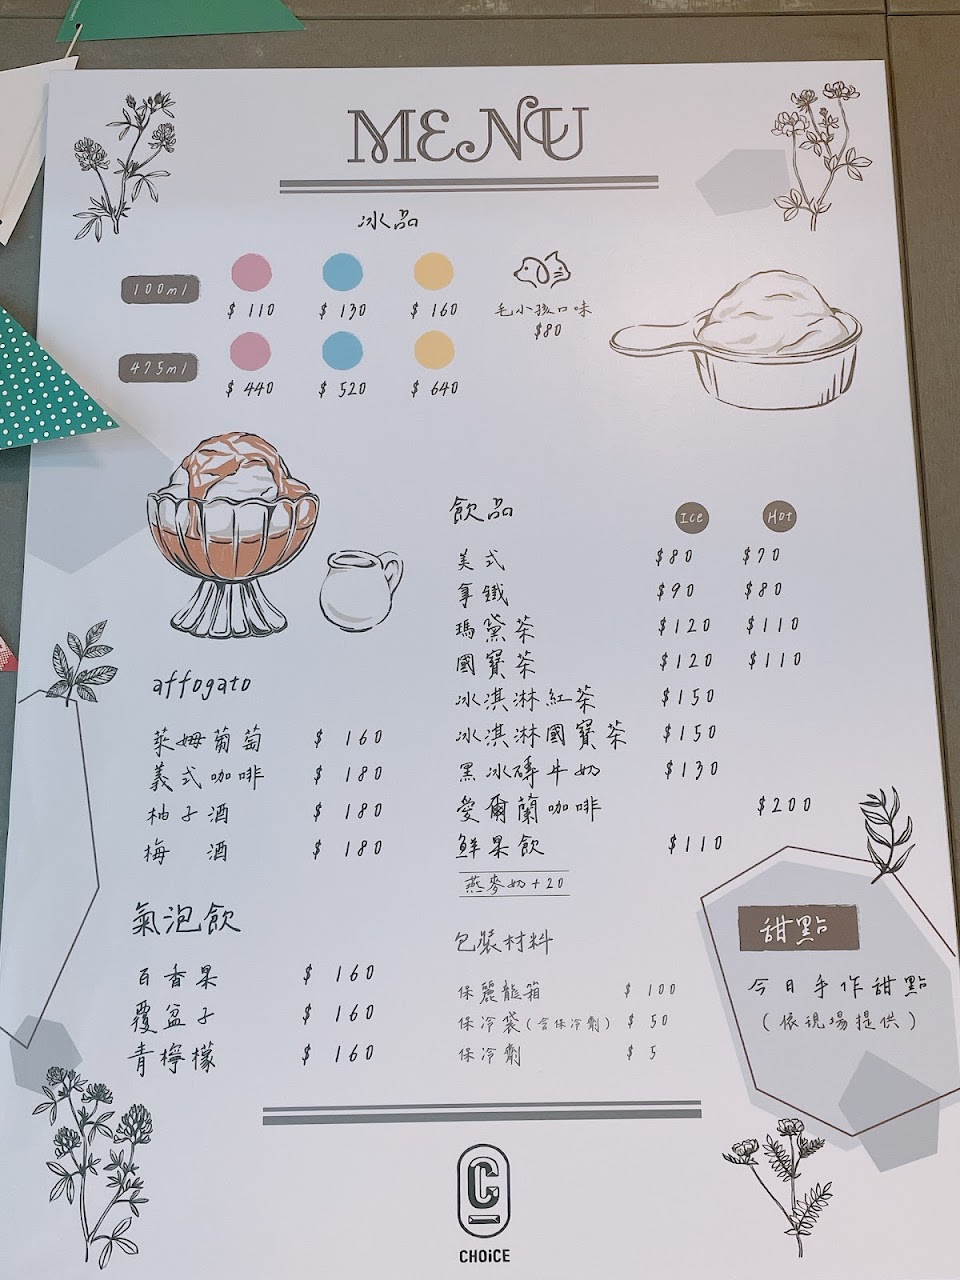 MENU
冰品
100ml
$ 110 $ 130 $ 160
毛小孩口味
$80
475ml
$ 440 $ 520 $ 640
飲品 Ice Hot
美式 $80 $70
拿鐵 $90 $80
瑪黛茶 $120 $110
國寶茶 $120 $110
冰淇淋紅茶 $150
冰淇淋國寶茶 $150
黑冰磚牛奶 $130
愛爾蘭咖啡 $200
鮮果飲 $110
燕麥奶+20
affogato
萊姆葡萄 $ 160
義式咖啡 $ 180
柚子酒 $ 180
梅 酒 $ 180
氣泡飲
百香果 $ 160
覆盆子 $ 160
青檸檬 $ 160
包裝材料
保麗龍箱 $ 100
保冷袋(含保冷劑) $ 50
保冷劑 $ 5
甜點
今日手作甜點
(依現場提供)
C
CHOiCE